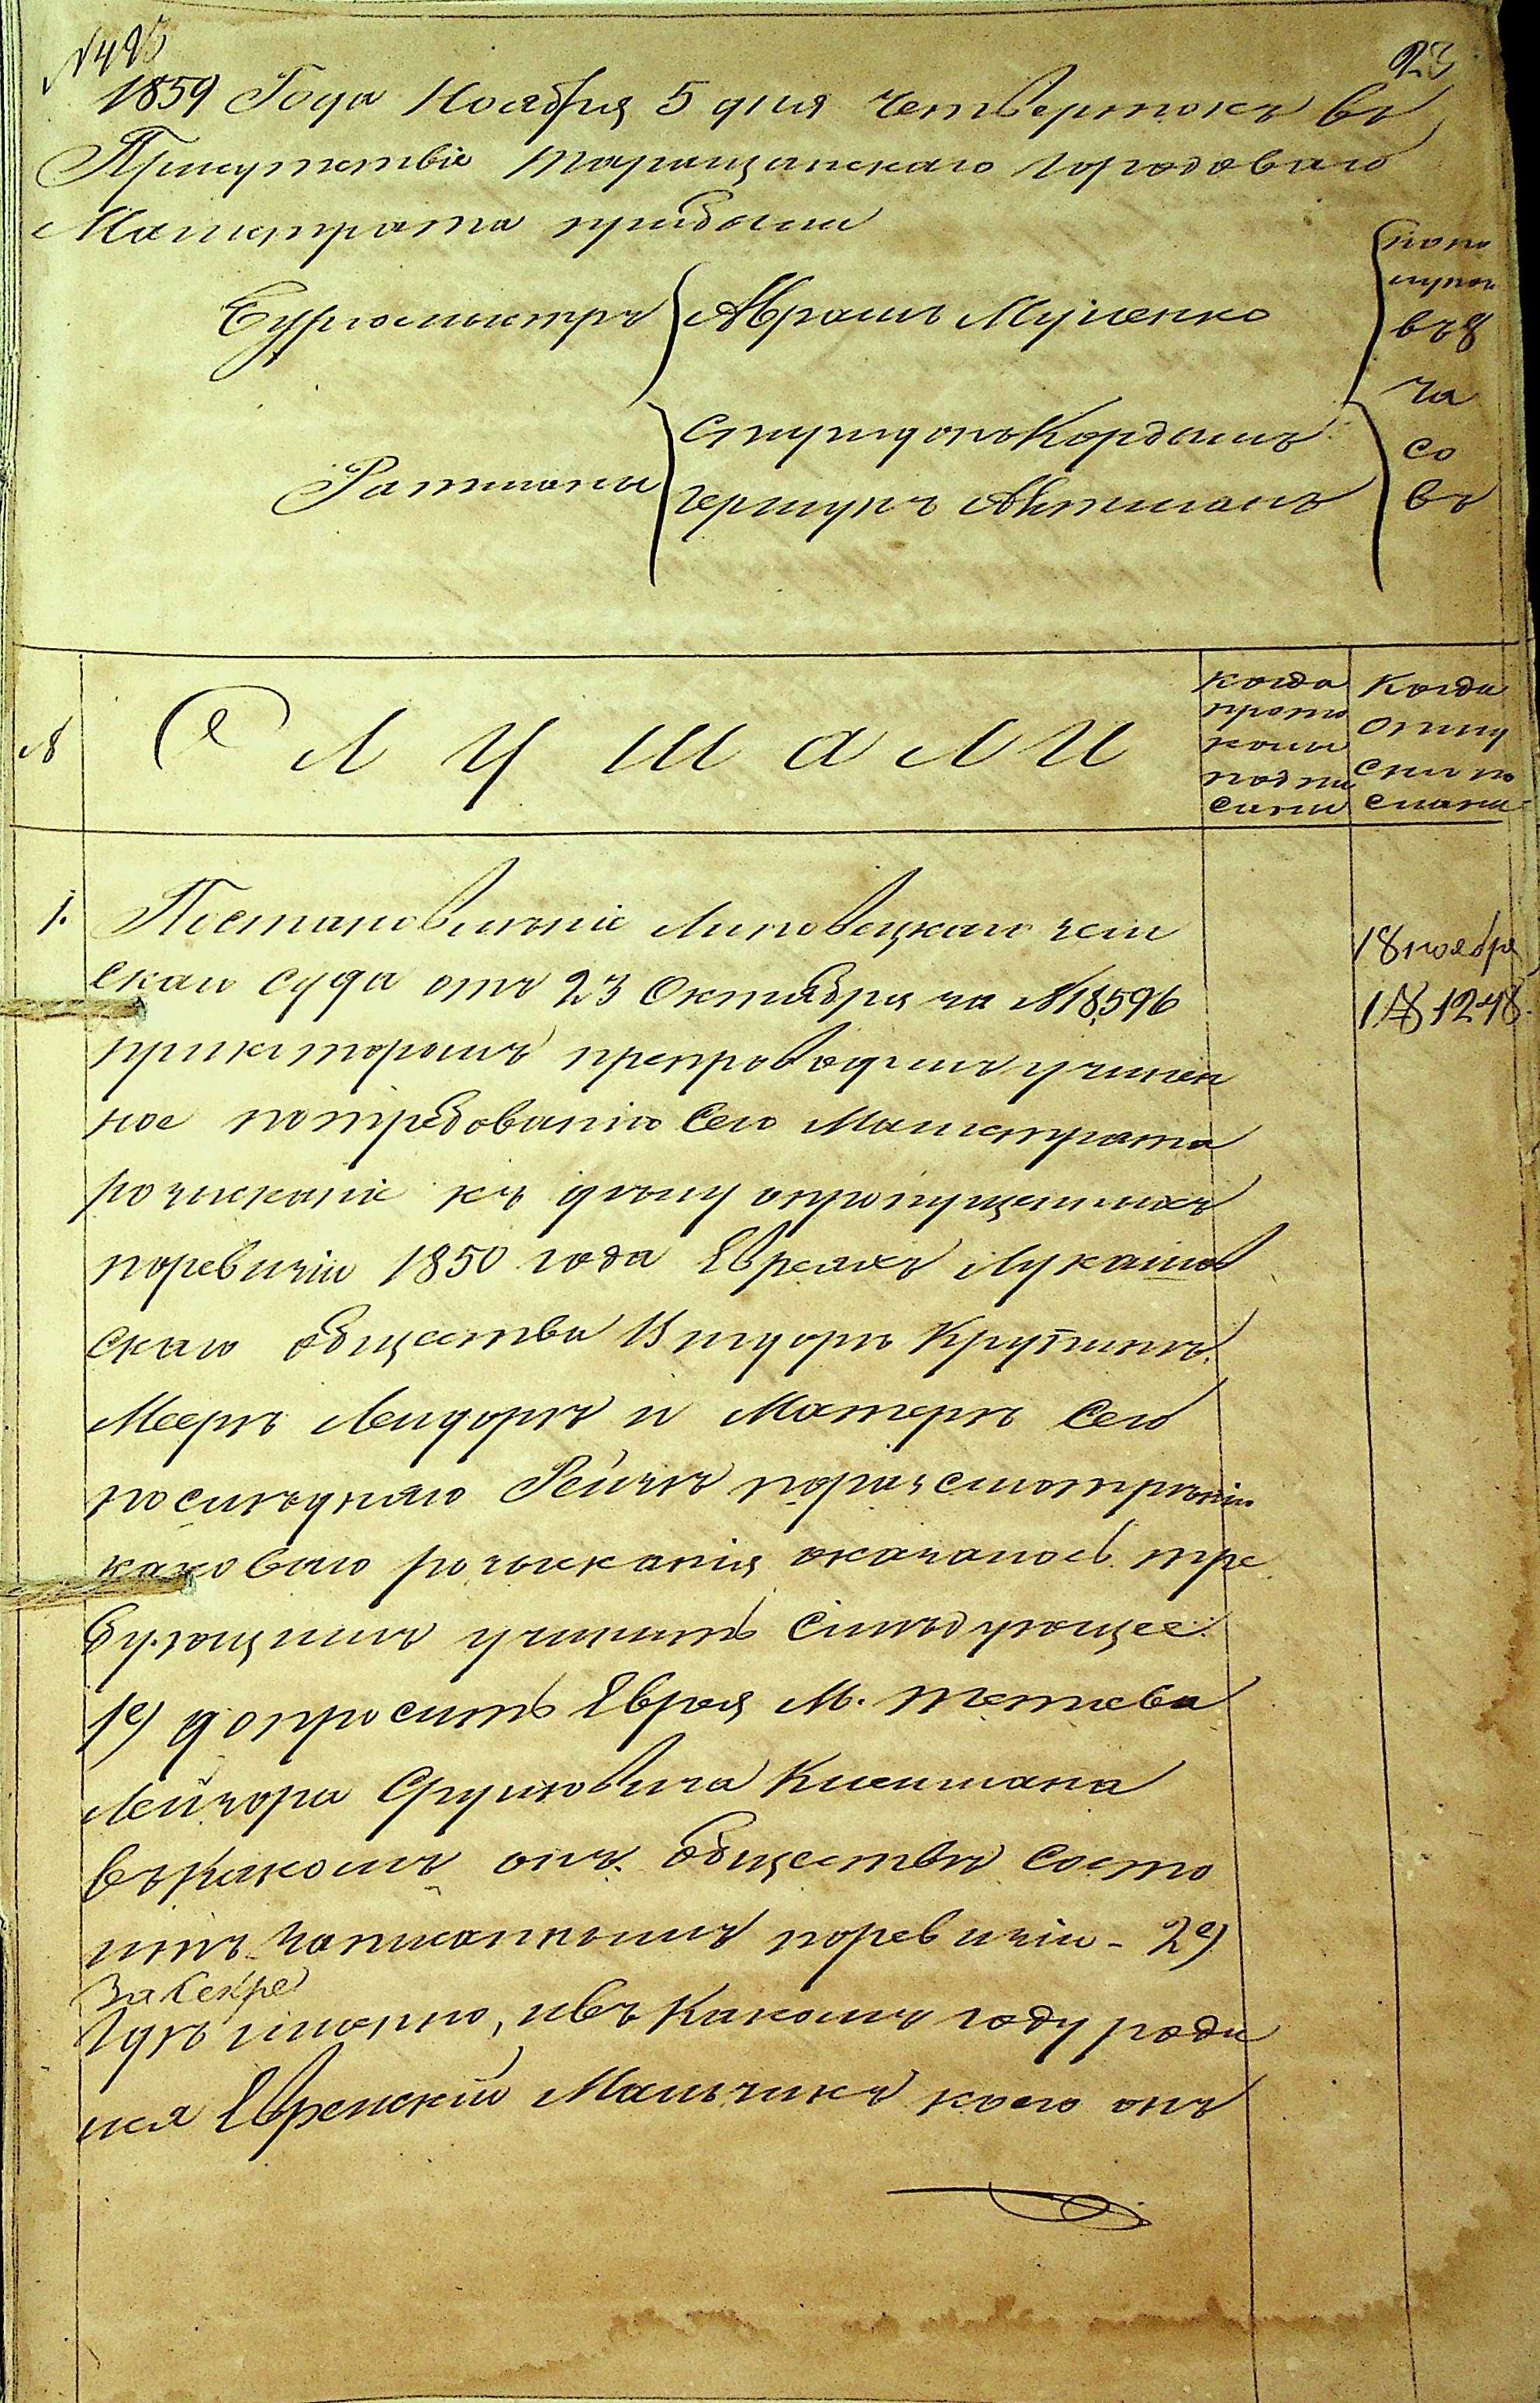 № 425
23
1859 Года Ноября 5 дня четвертокъ въ
Присутствіе Таращанскаго городоваго
Магистрата прибыли
Бургомистръ Абрамъ Мусенко
Ратманы Спиридонъ Кордышъ
Гершунъ Актманъ
попо
лунои
въ 8
ча
со
въ
№
СЛУШАЛИ
когда
прото
колы
подпи
саны
Когда
отпу
ски по
сланы
1.
Постановленіе Липовецкаго зем
скаго суда отъ 23 Октября за № 18,596
прикоторомъ препроводилъ учинен
ное потребованію Сего Магистрата
розысканіе къ дѣлу опропущенныхъ
поревизіи 1850 года Евреяхъ Лукашов
скаго общества Крутникъ
Меерѣ Лендорѣ и Матерѣ Сего
послѣдняго Рейзѣ поразсмотрѣніи
каковаго розысканія оказалось тре
бующимъ учинить Слѣдующее:
1е) допросить Еврея М. Тетіева
Лейзора Сруловича Килимана
въ какомъ онъ обществѣ состо
итъ записаннымъ поревизіи - 2е)
За Секре
Гдѣ имянно, ивъ какомъ году роди
лся Еврейскій Мальчикъ коего онъ
18 ноября
№ 1248.